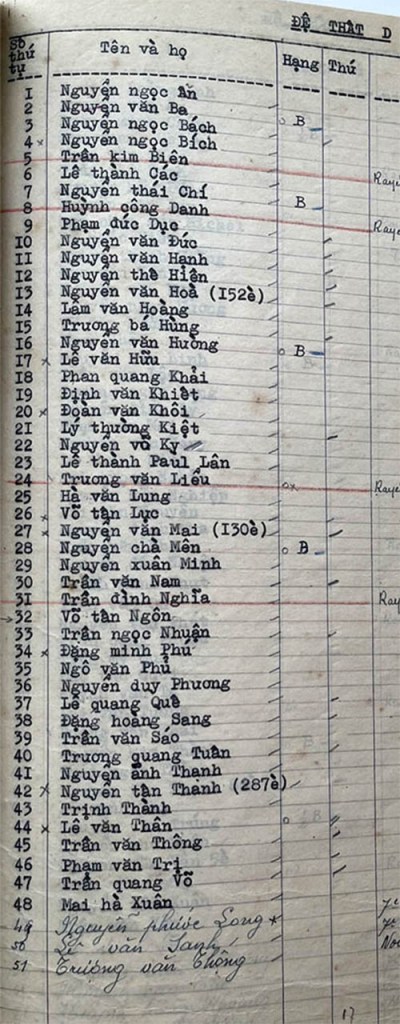 ĐỆ THẤT D
Số thứ tự Tên và họ Hạng Thứ
1 Nguyễn ngọc Ẩn
2 Nguyễn văn Ba
3 Nguyễn ngọc Bách B
4 x Nguyễn ngọc Bích
5 Trần kim Biên
6 Lê thành Các
7 Nguyễn thái Chí
8 Huỳnh công Danh B
9 Phạm đức Dục
10 Nguyễn văn Đức
11 Nguyễn văn Hạnh
12 Nguyễn thế Hiển
13 Nguyễn văn Hoà (152è)
14 Lâm văn Hoàng
15 Trương bá Hùng
16 Nguyễn văn Hường B
17 x Lê văn Hữu
18 Phan quang Khải
19 Định văn Khiết
20 x Đoàn văn Khôi
21 Lý thường Kiệt
22 Nguyễn võ Kỵ
23 Lê thành Paul Lân
24 Trương văn Liêu
25 Hà văn Lung
26 x Võ tấn Lực
27 x Nguyễn văn Mai (130è)
28 Nguyễn chà Mên B
29 Nguyễn xuân Minh
30 Trần văn Nam
31 Trần đình Nghĩa
32 Võ tấn Ngôn
33 Trần ngọc Nhuận
34 x Đặng minh Phú
35 Ngô văn Phủ
36 Nguyễn duy Phương
37 Lê quang Quê
38 Đặng hoàng Sang
39 Trần văn Sáo
40 Trương quang Tuấn
41 Nguyễn ánh Thạnh
42 x Nguyễn tấn Thạnh (287è)
43 Trịnh Thành
44 x Lê văn Thân
45 Trần văn Thông
46 Phạm văn Trị
47 Trần quang Võ
48 Mai hà Xuân
49 Nguyễn phước Long x
50 Lê văn Sanh
51 Trương văn Thống